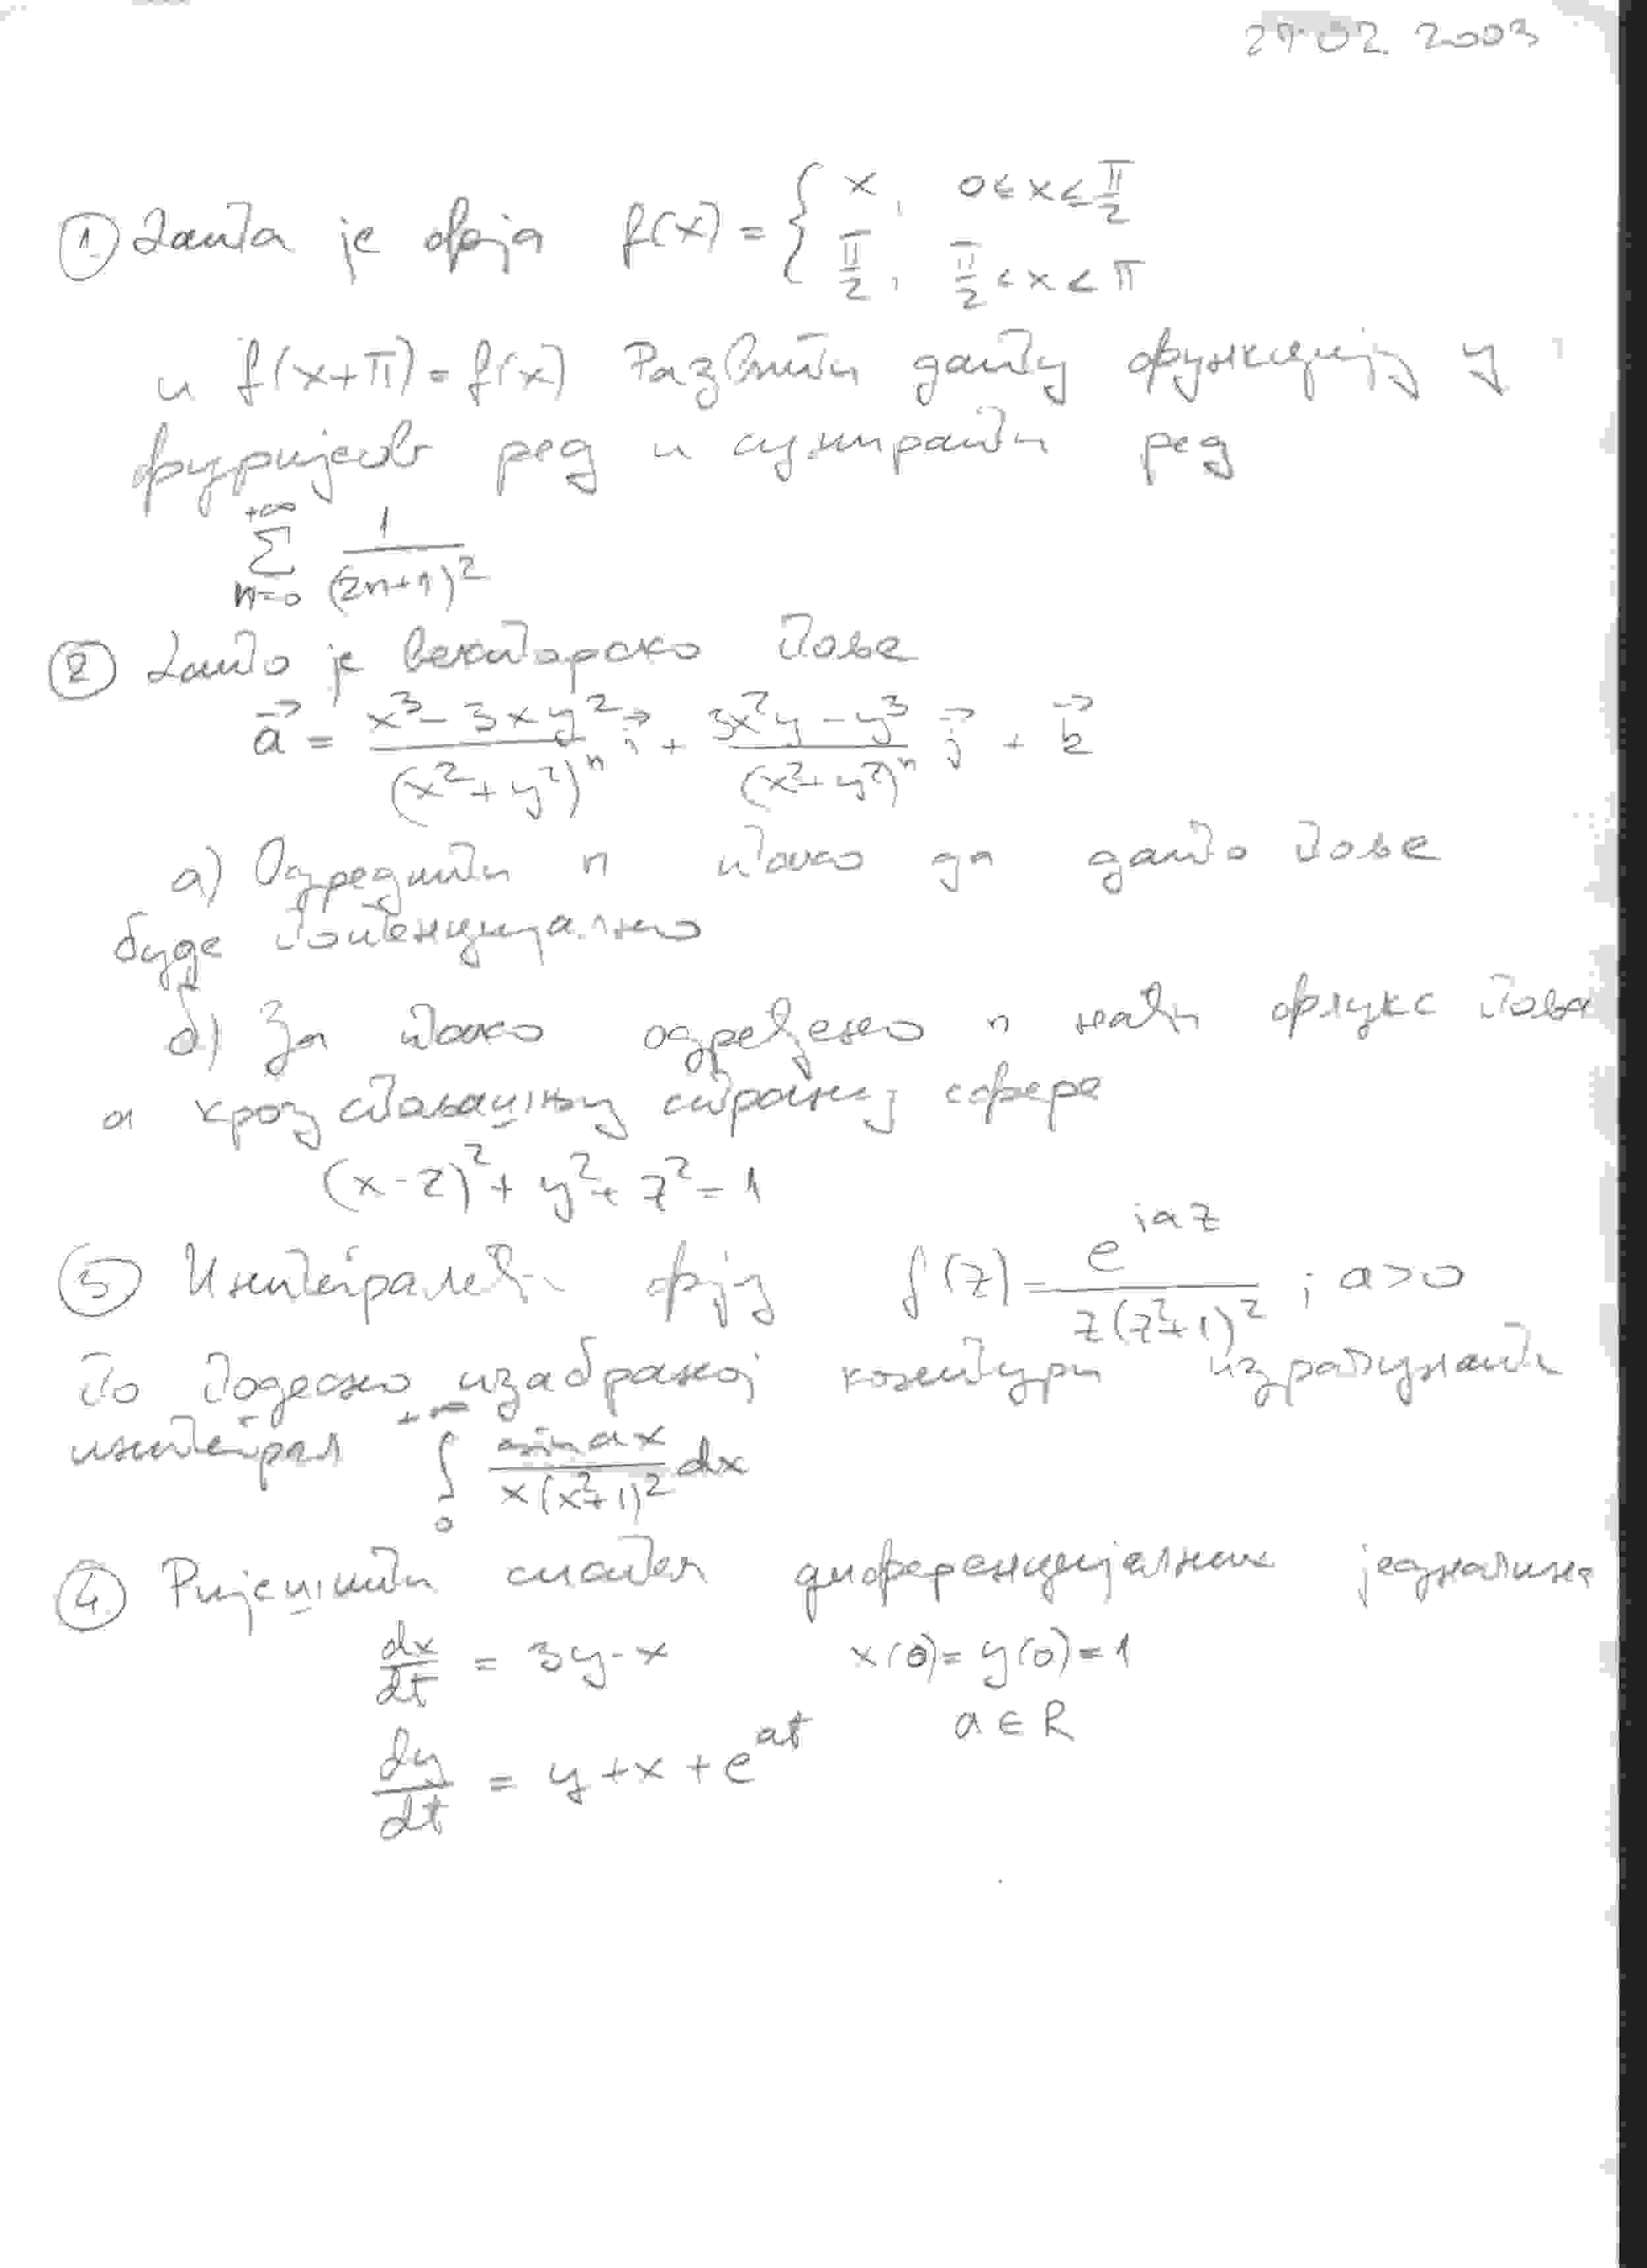 27.02.2003
① Дата је фја f(x) = { x, 0 ≤ x ≤ π/2
π/2, π/2 < x < π
и f(x+π) = f(x) Развити дату функцију у
фуријеов ред и сумирати ред
∑_{n=0}^{+∞} 1/(2n+1)²
② Дато је векторско поље
a⃗ = (x³ - 3xy²)/(x²+y²)ⁿ i⃗ + (3x²y - y³)/(x²+y²)ⁿ j⃗ + k⃗
а) Одредити n тако да дато поље
буде потенцијално
б) За тако одређено n наћи флукс поља
a кроз спољашњу страну сфере
(x-2)² + y² + z² = 1
③ Интегралећи фју f(z) = e^{iaz}/(z(z²+1)²) ; a>0
по подесно изабраној контури израчунати
интеграл ∫_0^{+∞} sin ax/(x(x²+1)²) dx
④ Ријешити систем диференцијалних једначина
dx/dt = 3y - x x(0) = y(0) = 1
dy/dt = y + x + e^{at} a ∈ R